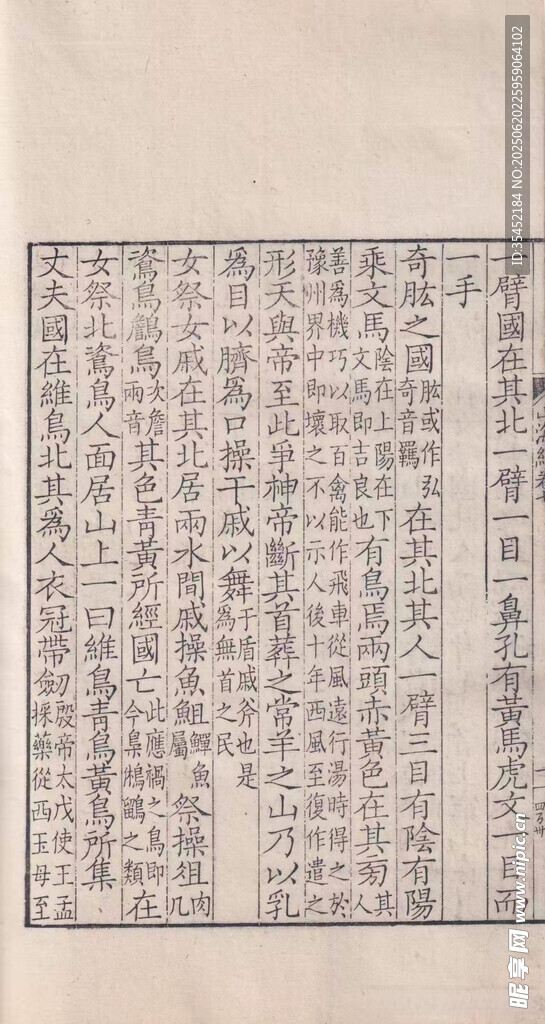 一臂國在其北一臂一目一鼻孔有黃馬虎文一目而
一手
奇肱之國肱或作弘奇音羈在其北其人一臂三目有陰有陽
乘文馬陰在上陽在下文馬即吉良也有鳥焉兩頭赤黃色在其旁其人
善為機巧以取百禽能作飛車從風遠行湯時得之於
豫州界中即壞之不以示人後十年西風至復作遣之
形天與帝至此爭神帝斷其首葬之常羊之山乃以乳
為目以臍為口操干戚以舞干盾戚斧也是為無首之民
女祭女戚在其北居兩水間戚操魚䱉鱓魚屬祭操俎肉几
鴜鳥鶬鳥次詹兩音其色青黃所經國亡此應禍之鳥即今梟鵂鶹之類在
女祭北鴜鳥人面居山上一曰維鳥青鳥黃鳥所集
丈夫國在維鳥北其為人衣冠帶劒殷帝太戊使王孟採藥從西王母至
山海經卷七
NO:20250620225959064102
ID:35452184
昵享网 www.nipic.cn